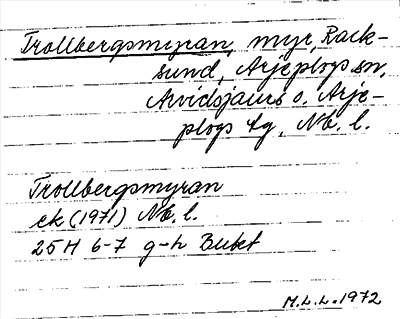 Trollbergsmyran, myr, Rack-
sund, Arjeplogs sn,
Arvidsjaurs o. Arje-
plogs tg, Nb. l.
Trollbergsmyran
ek (1971) Nb. l.
25H 6-7 g-h Butet
M.L.L. 1972